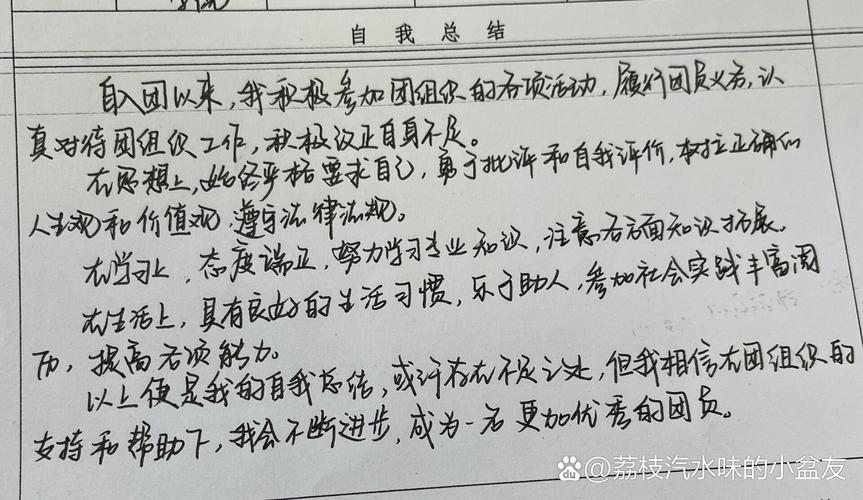 自我总结
自入团以来，我积极参加团组织的各项活动，履行团员义务，认
真对待团组织工作，积极改正自身不足。
在思想上，始终严格要求自己，勇于批评和自我评价，树立正确的
人生观和价值观，遵守法律法规。
在学习上，态度端正，努力学习专业知识，注意各方面知识拓展。
在生活上，具有良好的生活习惯，乐于助人，参加社会实践丰富阅
历，提高各项能力。
以上便是我的自我总结，或许存在不足之处，但我相信在团组织的
支持和帮助下，我会不断进步，成为一名更加优秀的团员。
Bai du @荔枝汽水味的小盆友